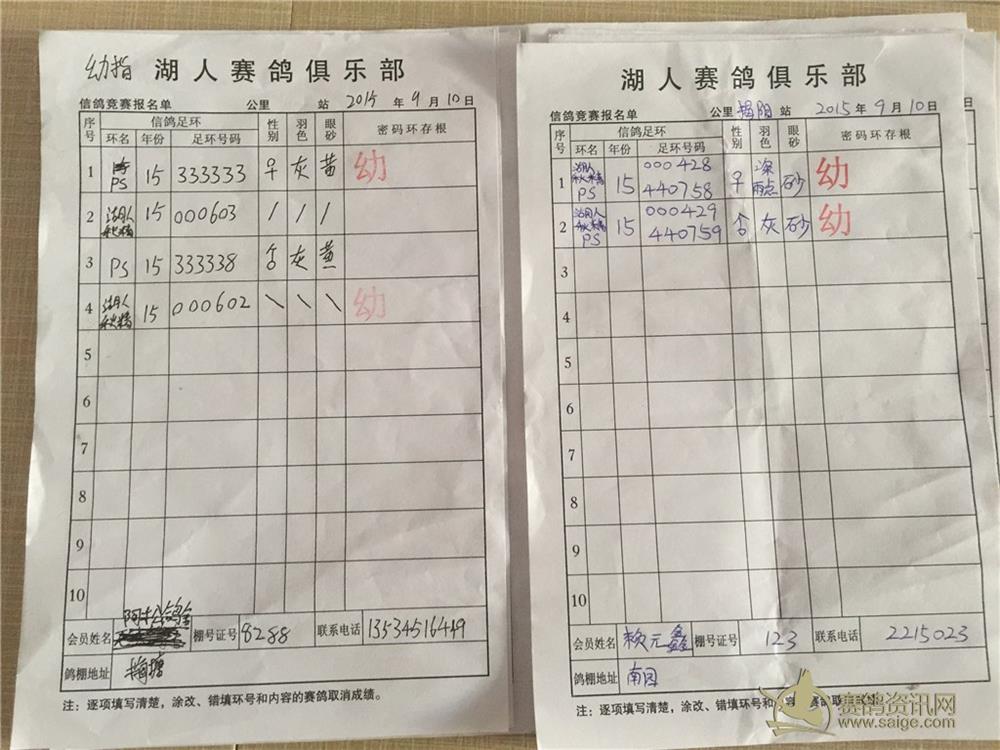 幼指 湖人赛鸽俱乐部
信鸽竞赛报名单 公里 站 2015 年 9 月 10 日
序号 信鸽足环 性别 羽色 眼砂 密码环存根
环名 年份 足环号码
1 PS 15 333333 ♀ 灰 黄 幼
2 湖人 秋精 15 000603 / / /
3 PS 15 333338 灰 黄
4 湖人 秋精 15 000602 \ \ \ 幼
5
6
7
8
9
10
会员姓名 棚号证号 8288 联系电话 13534516449
鸽棚地址 梅塘
注：逐项填写清楚，涂改、错填环号和内容的赛鸽取消成绩。
湖人赛鸽俱乐部
信鸽竞赛报名单 公里 揭阳 站 2015 年 9 月 10 日
序号 信鸽足环 性别 羽色 眼砂 密码环存根
环名 年份 足环号码
1 湖人 秋精 PS 15 000428 440758 ♀ 深雨点 砂 幼
2 湖人 秋精 PS 15 000429 440759 灰 砂 幼
3
4
5
6
7
8
9
10
会员姓名 赖元鑫 棚号证号 123 联系电话 2215023
鸽棚地址 南园
注：逐项填写清楚，涂改、错填环号和内容的赛鸽取消成绩。
赛鸽资讯网
www.saige.com